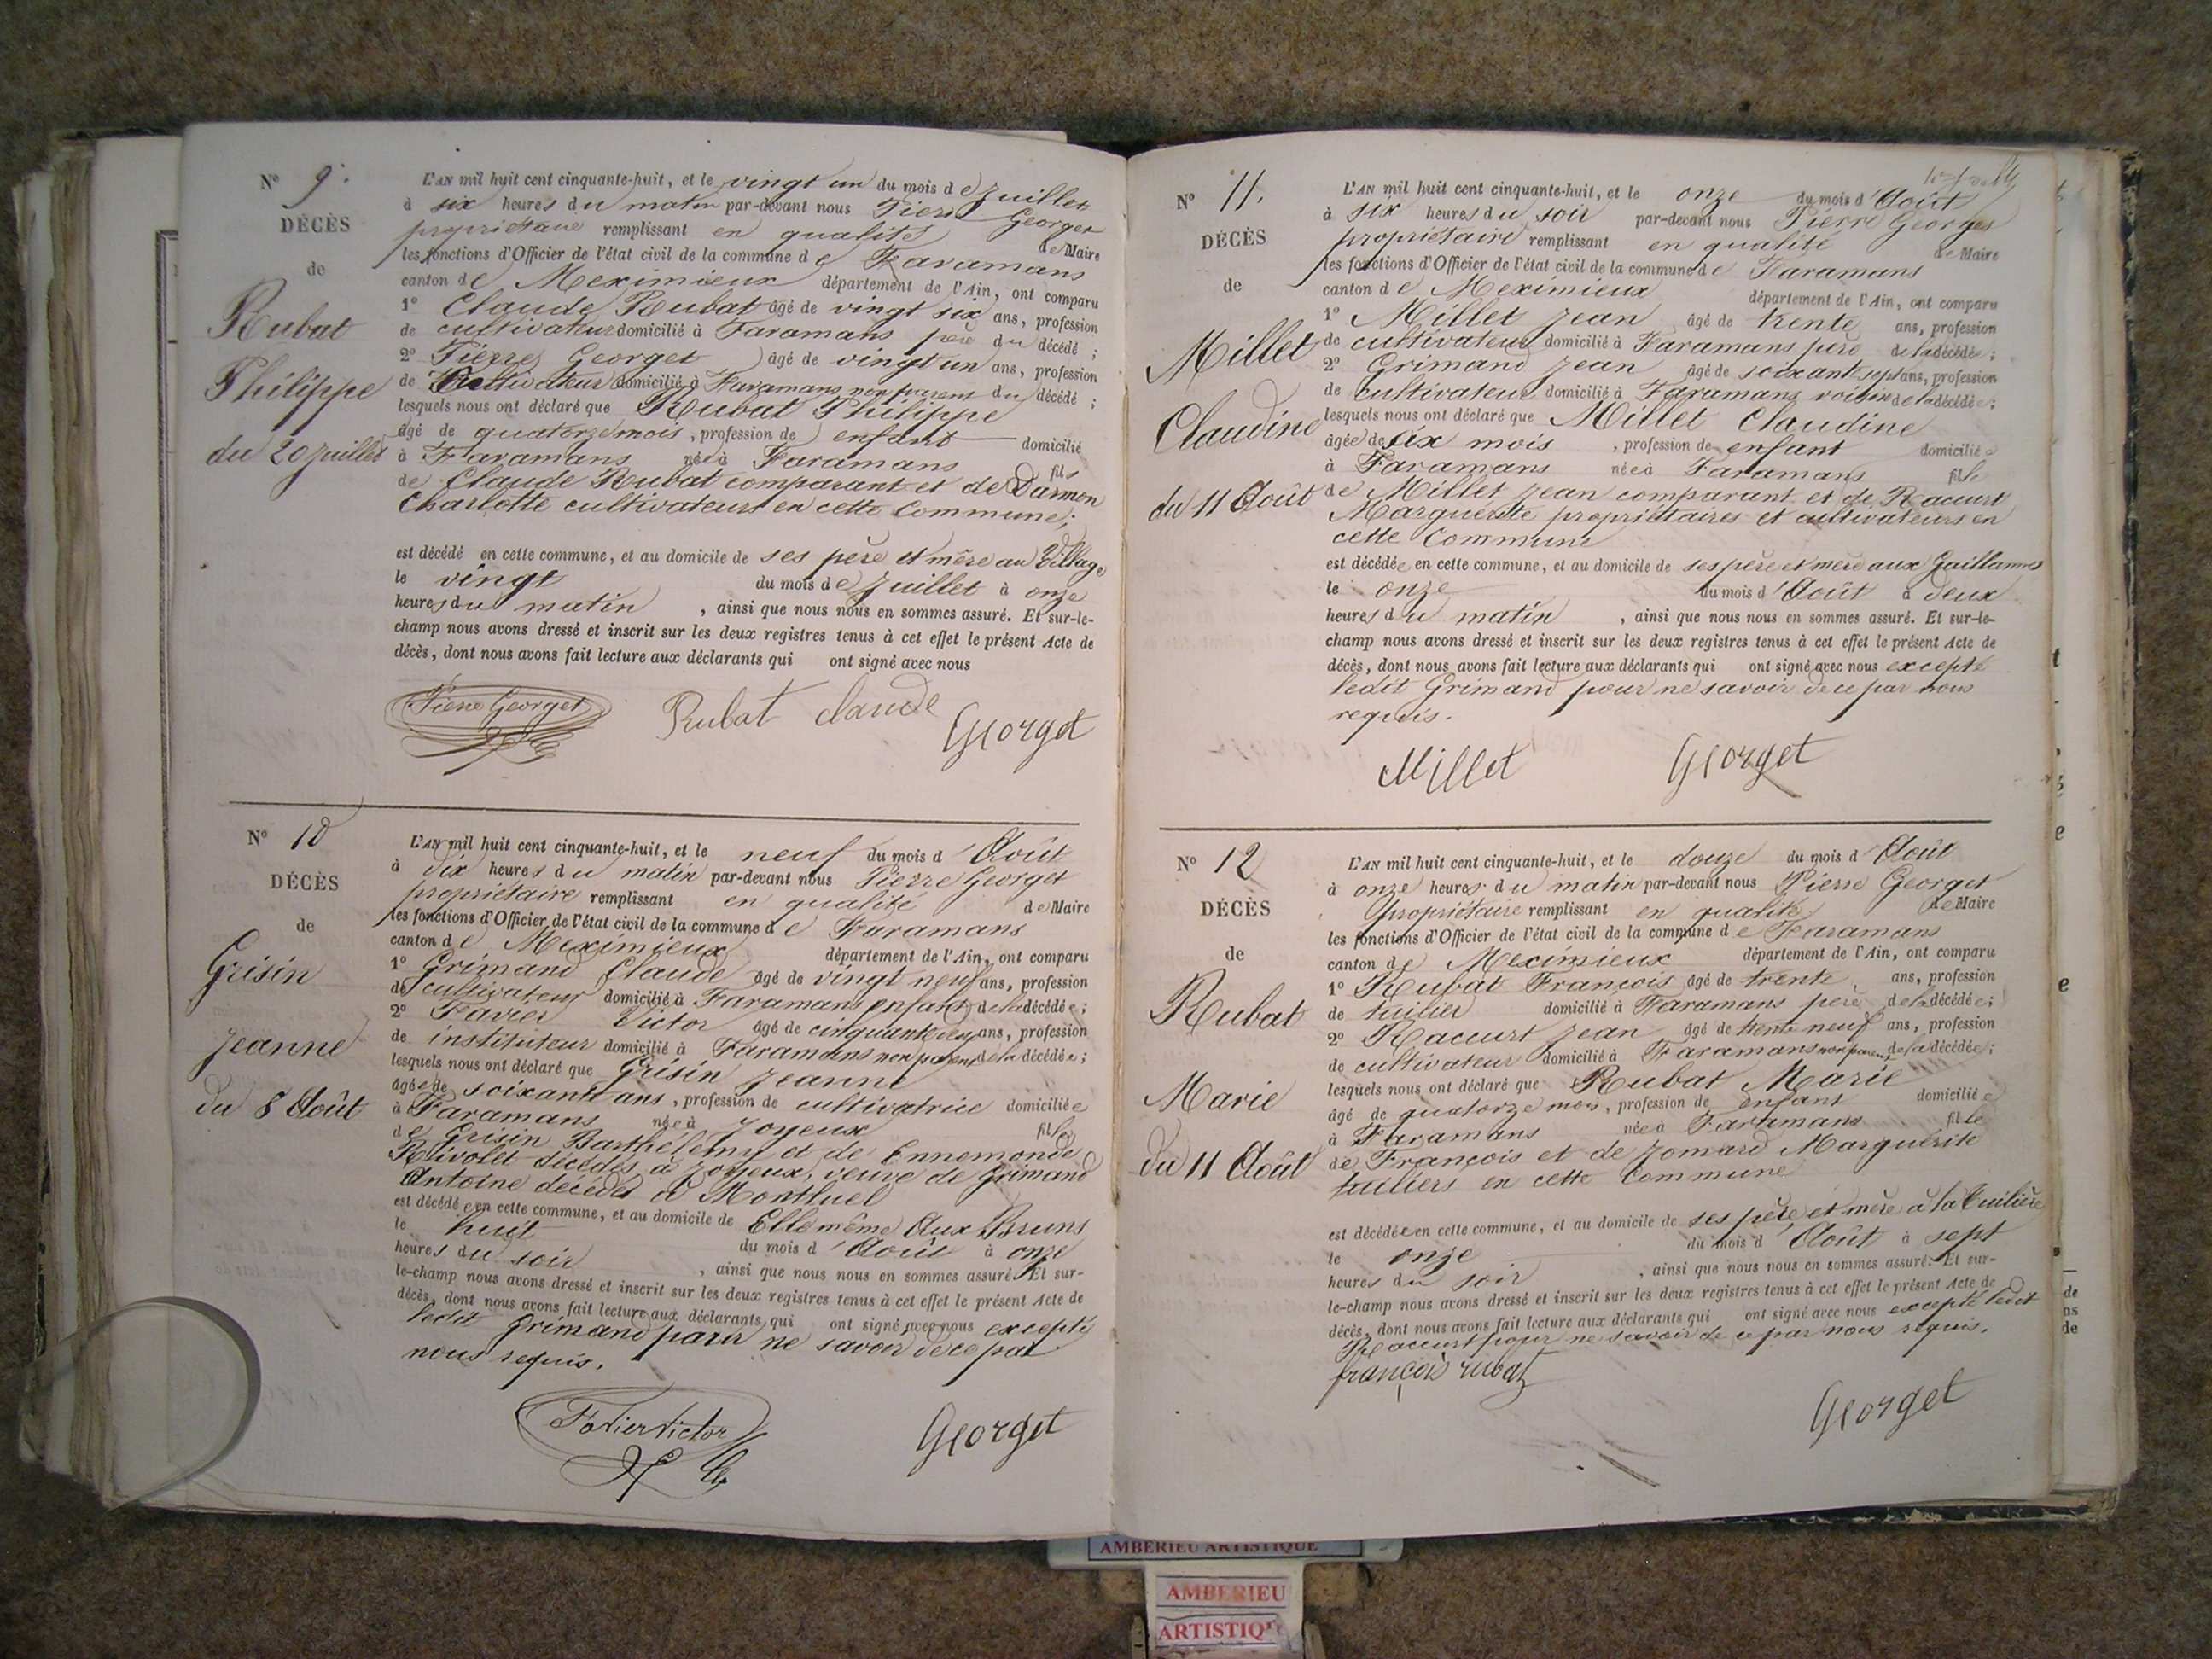 N° 9.
DÉCÈS
de
Rubat
Philippe
du 20 Juillet
L'AN mil huit cent cinquante-huit, et le vingt un du mois de Juillet
à six heures du matin par-devant nous Pierre Georget
propriétaire remplissant en qualité de Maire
les fonctions d'Officier de l'état civil de la commune de Faramans
canton de Meximieux département de l'Ain, ont comparu
1° Claude Rubat âgé de vingt six ans, profession
de cultivateur domicilié à Faramans père du décédé ;
2° Pierre Georget âgé de vingt un ans, profession
de Cultivateur domicilié à Faramans non parent du décédé ;
lesquels nous ont déclaré que Rubat Philippe
âgé de quatorze mois, profession de enfant domicilié
à Faramans né à Faramans fils
de Claude Rubat comparant et de Darmon
Charlotte cultivateurs en cette Commune ;
est décédé en cette commune, et au domicile de ses père et mère au Village
le vingt du mois de Juillet à onze
heures du matin, ainsi que nous nous en sommes assuré. Et sur-le-
champ nous avons dressé et inscrit sur les deux registres tenus à cet effet le présent Acte de
décès, dont nous avons fait lecture aux déclarants qui ont signé avec nous
Pierre Georget Rubat claude Georget
N° 10
DÉCÈS
de
Grisin
Jeanne
du 8 Août
L'AN mil huit cent cinquante-huit, et le neuf du mois d'Août
à dix heures du matin par-devant nous Pierre Georget
propriétaire remplissant en qualité de Maire
les fonctions d'Officier de l'état civil de la commune de Faramans
canton de Meximieux département de l'Ain, ont comparu
1° Grimand Claude âgé de vingt neuf ans, profession
de cultivateur domicilié à Faramans enfant de la décédée ;
2° Favier Victor âgé de cinquante ans, profession
de instituteur domicilié à Faramans non parent de la décédée ;
lesquels nous ont déclaré que Grisin Jeanne
âgée de soixante ans, profession de cultivatrice domiciliée
à Faramans née à Joyeux fille
de Grisin Barthélemy et de Ennemonde
Rivolet décédés à Joyeux, veuve de Grimand
Antoine décédé à Montluel
est décédée en cette commune, et au domicile de Elle même Aux Bruns
le huit du mois d'Août à onze
heures du soir, ainsi que nous nous en sommes assuré. Et sur-
le-champ nous avons dressé et inscrit sur les deux registres tenus à cet effet le présent Acte de
décès, dont nous avons fait lecture aux déclarants qui ont signé avec nous excepté
ledit Grimand pour ne savoir de ce par
nous requis.
Favier Victor Georget
N° 11.
DÉCÈS
de
Millet
Claudine
du 11 Août
L'AN mil huit cent cinquante-huit, et le onze du mois d'Août
à six heures du soir par-devant nous Pierre Georget
propriétaire remplissant en qualité de Maire
les fonctions d'Officier de l'état civil de la commune de Faramans
canton de Meximieux département de l'Ain, ont comparu
1° Millet Jean âgé de trente ans, profession
de cultivateur domicilié à Faramans père de la décédée ;
2° Grimand Jean âgé de soixante sept ans, profession
de cultivateur domicilié à Faramans voisin de la décédée ;
lesquels nous ont déclaré que Millet Claudine
âgée de mois, profession de enfant domiciliée
à Faramans née à Faramans fille
de Millet Jean comparant et de Raccurt
Marguerite propriétaires et cultivateurs en
cette Commune
est décédée en cette commune, et au domicile de ses père et mère aux Gaillannes
le onze du mois d'Août à deux
heures du matin, ainsi que nous nous en sommes assuré. Et sur-le-
champ nous avons dressé et inscrit sur les deux registres tenus à cet effet le présent Acte de
décès, dont nous avons fait lecture aux déclarants qui ont signé avec nous excepté
ledit Grimand pour ne savoir de ce par nous
requis.
Millet Georget
N° 12
DÉCÈS
de
Rubat
Marie
du 11 Août
L'AN mil huit cent cinquante-huit, et le douze du mois d'Août
à onze heures du matin par-devant nous Pierre Georget
propriétaire remplissant en qualité de Maire
les fonctions d'Officier de l'état civil de la commune de Faramans
canton de Meximieux département de l'Ain, ont comparu
1° Rubat François âgé de trente ans, profession
de tuilier domicilié à Faramans père de la décédée ;
2° Raccurt Jean âgé de trente neuf ans, profession
de cultivateur domicilié à Faramans non parent de la décédée ;
lesquels nous ont déclaré que Rubat Marie
âgé de quatorze mois, profession de enfant domiciliée
à Faramans née à Faramans fille
de François et de Jomard Marguérite
tuiliers en cette Commune
est décédée en cette commune, et au domicile de ses père et mère à la Tuilière
le onze du mois d'Août à sept
heures du soir, ainsi que nous nous en sommes assuré. Et sur-
le-champ nous avons dressé et inscrit sur les deux registres tenus à cet effet le présent Acte de
décès, dont nous avons fait lecture aux déclarants qui ont signé avec nous excepté ledit
Raccurt pour ne savoir de ce par nous requis.
françois rubat
Georget
AMBERIEU ARTISTIQUE
AMBERIEU
ARTISTIQ